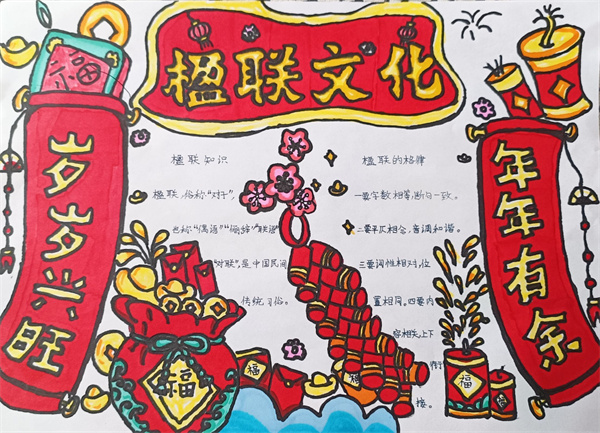 楹联文化
岁岁兴旺
年年有余
楹联知识
楹联，俗称“对子”，
也称“偶语”“俪辞”“联语”
“对联”，是中国民间
传统习俗。
楹联的格律
一要字数相等，断句一致。
二要平仄相合，音调和谐。
三要词性相对，位
置相同。四要内
容相关，上下
衔
接。
福
福
福
福